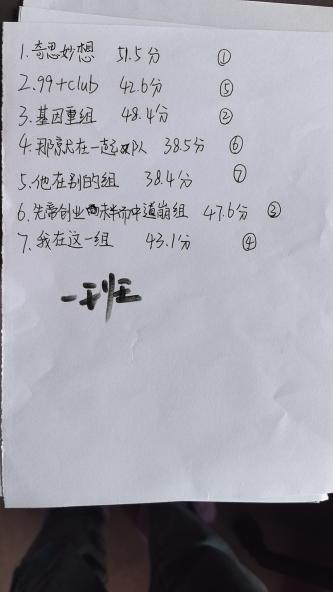 1. 奇思妙想 51.5分 ①
2. 99+club 42.6分 ⑤
3. 基因重组 48.4分 ②
4. 那就在一起队 38.5分 ⑥
5. 他在别的组 38.4分 ⑦
6. 先帝创业未半而中道崩组 47.6分 ③
7. 我在这一组 43.1分 ④
一班